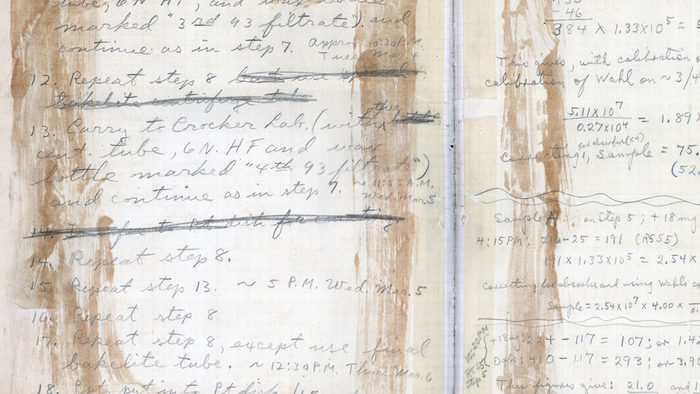 tube, 6N HF, and wax bottle
marked "3rd 93 filtrate") and
continue as in step 7. Approx 10:30 P.M.
Tues. Mar. 4
12. Repeat step 8
bakelite centrifuge tube
13. Carry to Crocker Lab. (with other
cent. tube, 6N. HF and wax
bottle marked "4th 93 filtrate")
and continue as in step 7. ~ 11:55 A.M.
Wed. Mar. 5
14. Repeat step 8.
15. Repeat step 13. ~ 5 P.M. Wed. Mar. 5
16. Repeat step 8
17. Repeat step 8, except use final
bakelite tube. ~ 12:30 P.M. Thurs. Mar. 6
18.
46
384 × 1.33×10⁵ =
This gives, with calibration
calibration of Wahl on ~3/
5.11×10⁷
0.27×10⁴
= 1.89
correcting, Sample = 75.
(52.
Sample A. on Step 5; +18 mg
4:15 P.M. 216-25 = 191 (R5S5)
191 × 1.33×10⁵ = 2.54×
correcting for absorber and using Wahl's
Sample = 2.54×10⁷ × 4.00 ×
10:20 P.M.
Step 5
+18 mg: 24 - 117 = 107; or 1.42
Down: 410 - 117 = 293; or 3.90
This figures give: 21.0